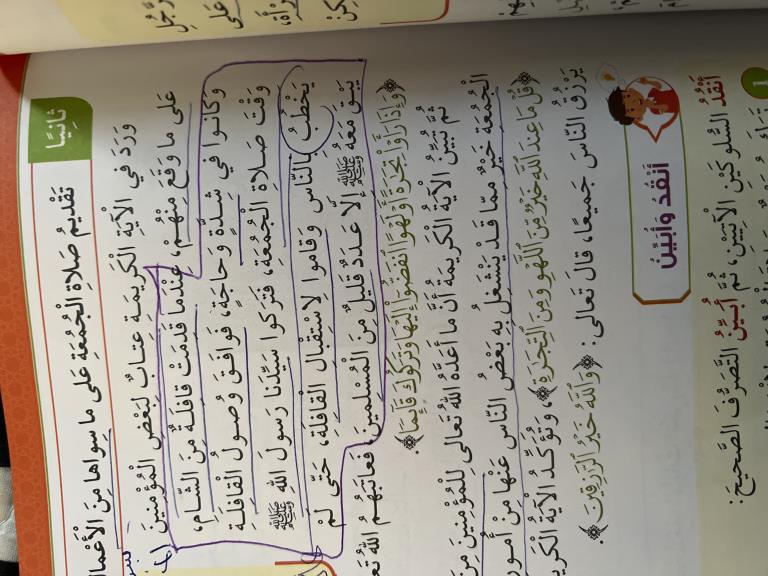 ثانِيًا
تَقْديمُ صَلاةِ الْجُمُعَةِ عَلى ما سِواها مِنَ الْأَعْمالِ
وَرَدَ في الْآيَةِ الْكَريمَةِ عِتابٌ لِبَعْضِ الْمُؤْمِنينَ
عَلى ما وَقَعَ مِنْهُمْ، عِنْدَما قَدِمَتْ قافِلَةٌ مِنَ الشّامِ،
وَكانوا في شِدَّةٍ وَحاجَةٍ، فَوافَقَ وُصولُ الْقافِلَةِ
وَقْتَ صَلاةِ الْجُمُعَةِ، فَتَرَكوا سَيِّدَنا رَسولَ اللهِ ﷺ
يَخْطُبُ بِالنّاسِ وَقاموا لِاسْتِقْبالِ الْقافِلَةِ، حَتّى لَمْ
يَبْقَ مَعَهُ ﷺ إِلّا عَدَدٌ قَليلٌ مِنَ الْمُسْلِمينَ، فَعاتَبَهُمُ اللهُ
﴿وَإِذَا رَأَوْا تِجَارَةً أَوْ لَهْوًا انفَضُّوا إِلَيْهَا وَتَرَكُوكَ قَائِمًا﴾
ثُمَّ تُبَيِّنُ الْآيَةُ الْكَريمَةُ أَنَّ ما أَعَدَّهُ اللهُ تَعالى لِلْمُؤْمِنينَ
الْجُمُعَةِ خَيْرٌ مِمّا قَدْ يَنْشَغِلُ بِهِ بَعْضُ النّاسِ عَنْها مِنْ أُمور
﴿قُلْ مَا عِندَ اللَّهِ خَيْرٌ مِّنَ اللَّهْوِ وَمِنَ التِّجَارَةِ﴾، وَتُؤَكِّدُ الْآيَةُ
يَرْزُقُ النّاسَ جَميعًا، قالَ تَعالى: ﴿وَاللَّهُ خَيْرُ الرَّازِقِينَ﴾.
أَنْقُدُ وَأُبَيِّنُ
1
أَنْقُدُ السُّلوكَيْنِ الْآتِيَيْنِ، ثُمَّ أُبَيِّنُ التَّصَرُّفَ الصَّحيحَ: